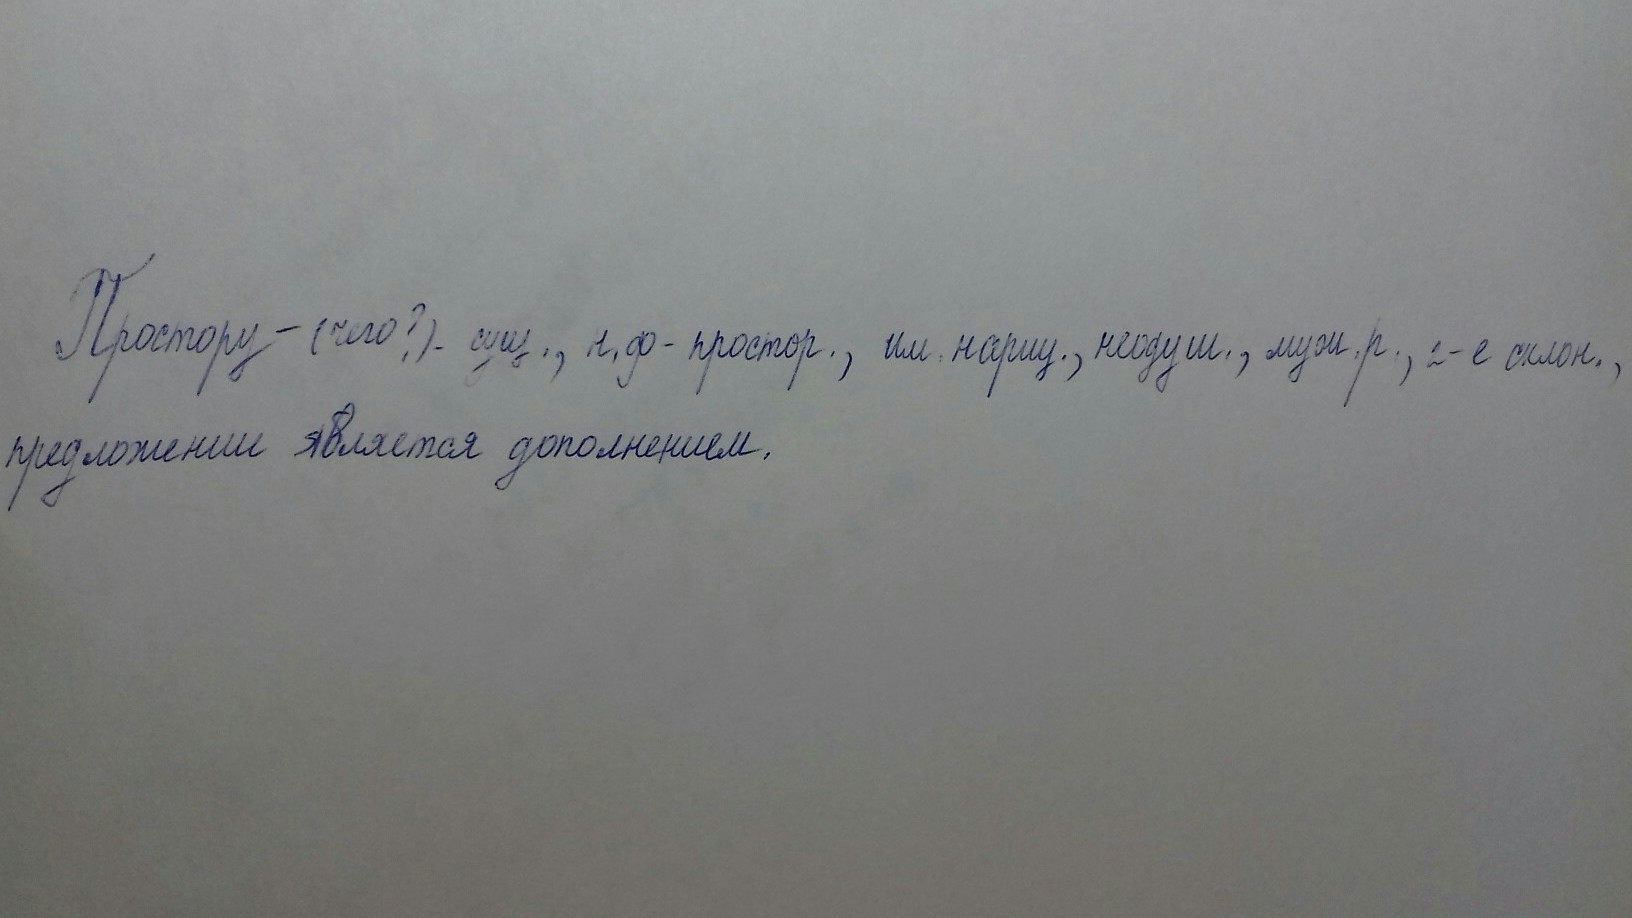 Простору - (чего?) - сущ., н.ф - простор., им. нариц., неодуш., муж.р., 2-е склон.,
предложении является дополнением.